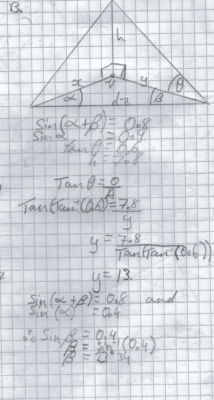 B.
h
x
y
θ
α
β
Sin(α+β) = 0.8
Sin α = 0.4
tan θ = 0.6
h = 7.8
Tan θ = O/A
Tan(Tan⁻¹(0.6)) = 7.8/y
y = 7.8/Tan(Tan⁻¹(0.6))
y = 13.
Sin(α+β) = 0.8 and
Sin(α) = 0.4
∴ Sin β = 0.4
β = Sin⁻¹(0.4)